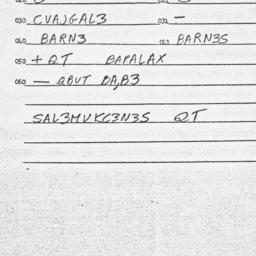 030 CVA)GAL3 032 —
040 BARN3 BARN3S
050 + QT BAPALAX
060 — QBUT DA,B3
SAL3MVKC3N3S QT